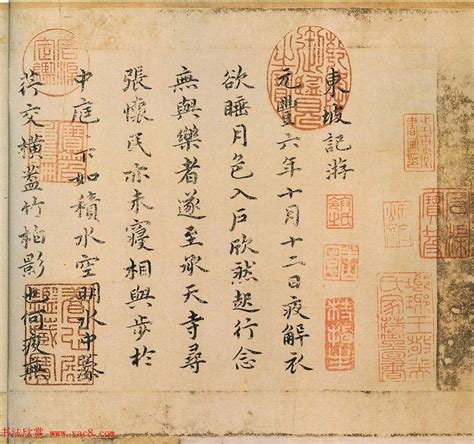 東坡記游
元豐六年十月十二日夜解衣
欲睡月色入戶欣然起行念
無與樂者遂至承天寺尋
張懷民亦未寢相與步於
中庭下如積水空明水中藻
荇交橫蓋竹柏影也何夜無
琅琊王敬美氏家藏圖書
书法欣赏 www.yac8.com